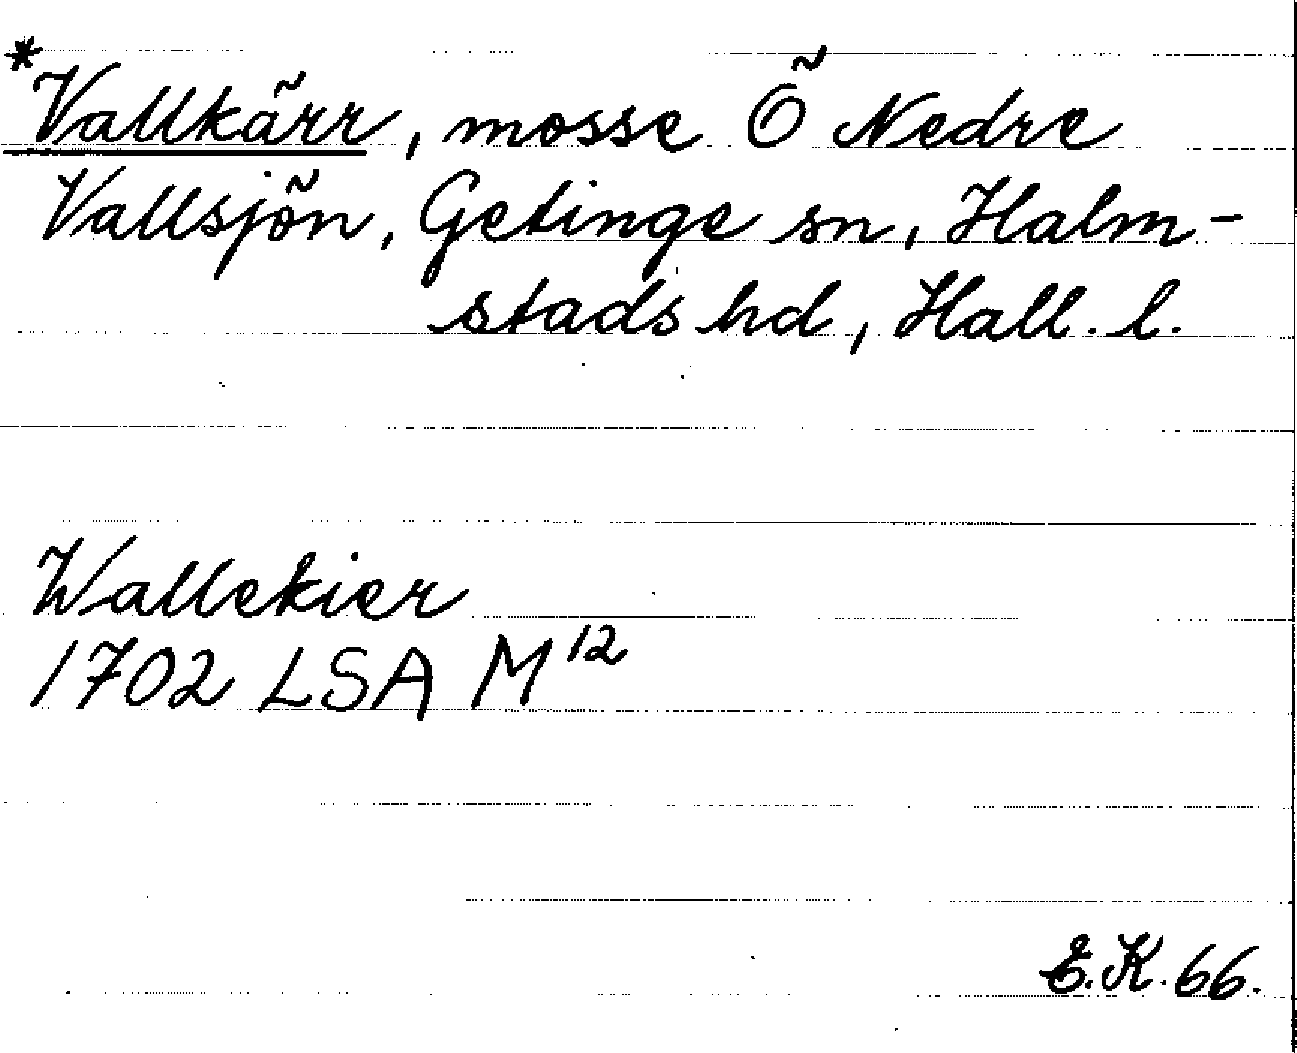 *Vallkärr, mosse Ö Nedre
Vallsjön, Getinge sn, Halm-
stads hd, Hall. l.
Wallekier
1702 LSA M¹²
E.K. 66.